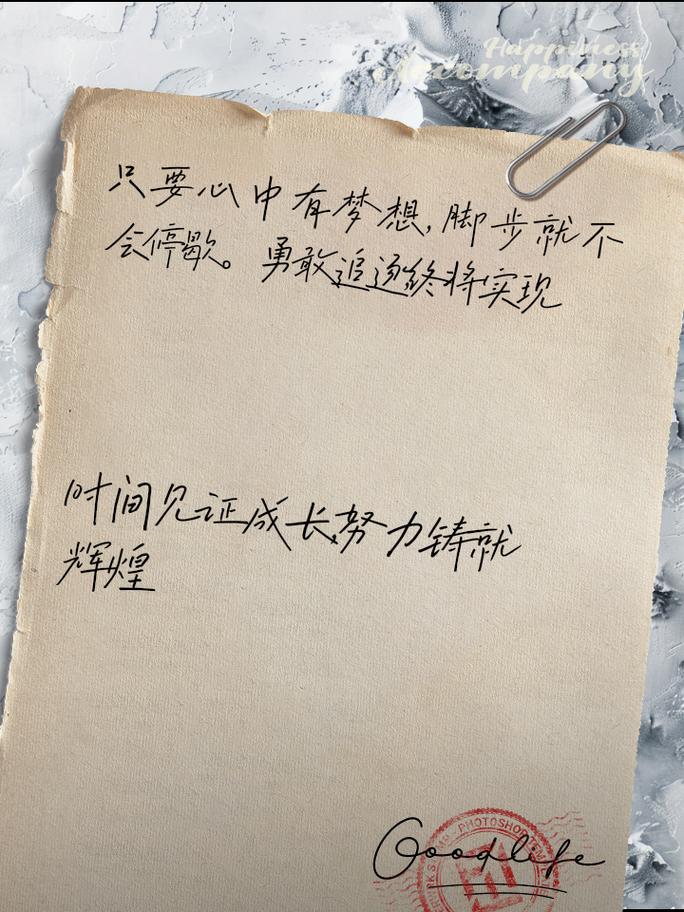 Happiness
Accompany
只要心中有梦想,脚步就不
会停歇。勇敢追逐终将实现
时间见证成长,努力铸就
辉煌
PHOTOSHOP
Goodlife